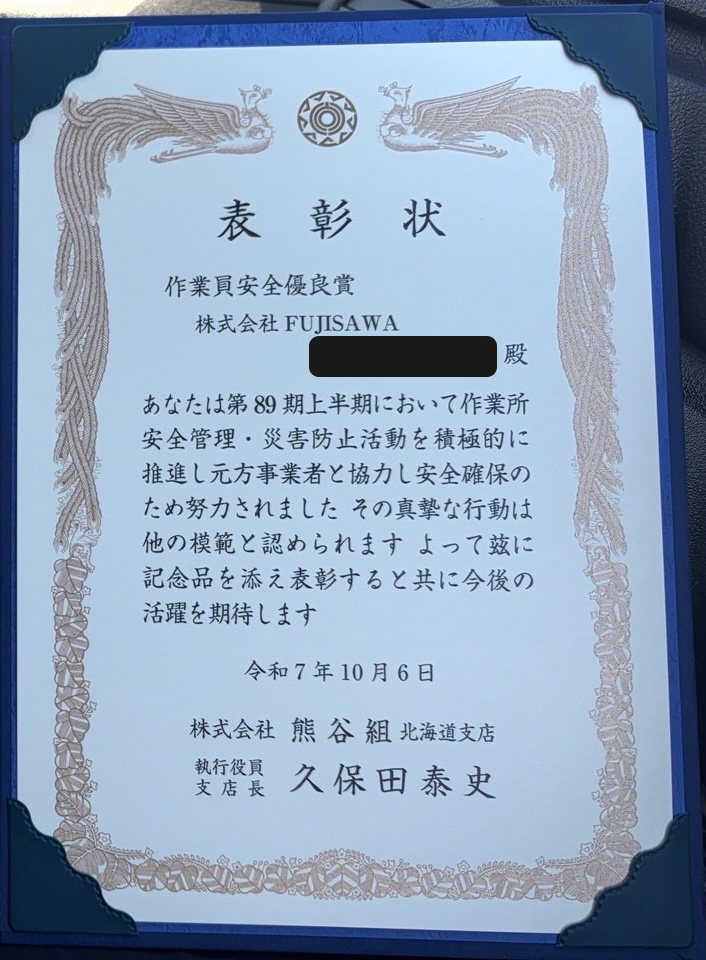 表彰状
作業員安全優良賞
株式会社 FUJISAWA
殿
あなたは第 89 期上半期において作業所
安全管理・災害防止活動を積極的に
推進し元方事業者と協力し安全確保の
ため努力されました その真摯な行動は
他の模範と認められます よって玆に
記念品を添え表彰すると共に今後の
活躍を期待します
令和 7 年 10 月 6 日
株式会社 熊谷組 北海道支店
執行役員
支店長 久保田泰史